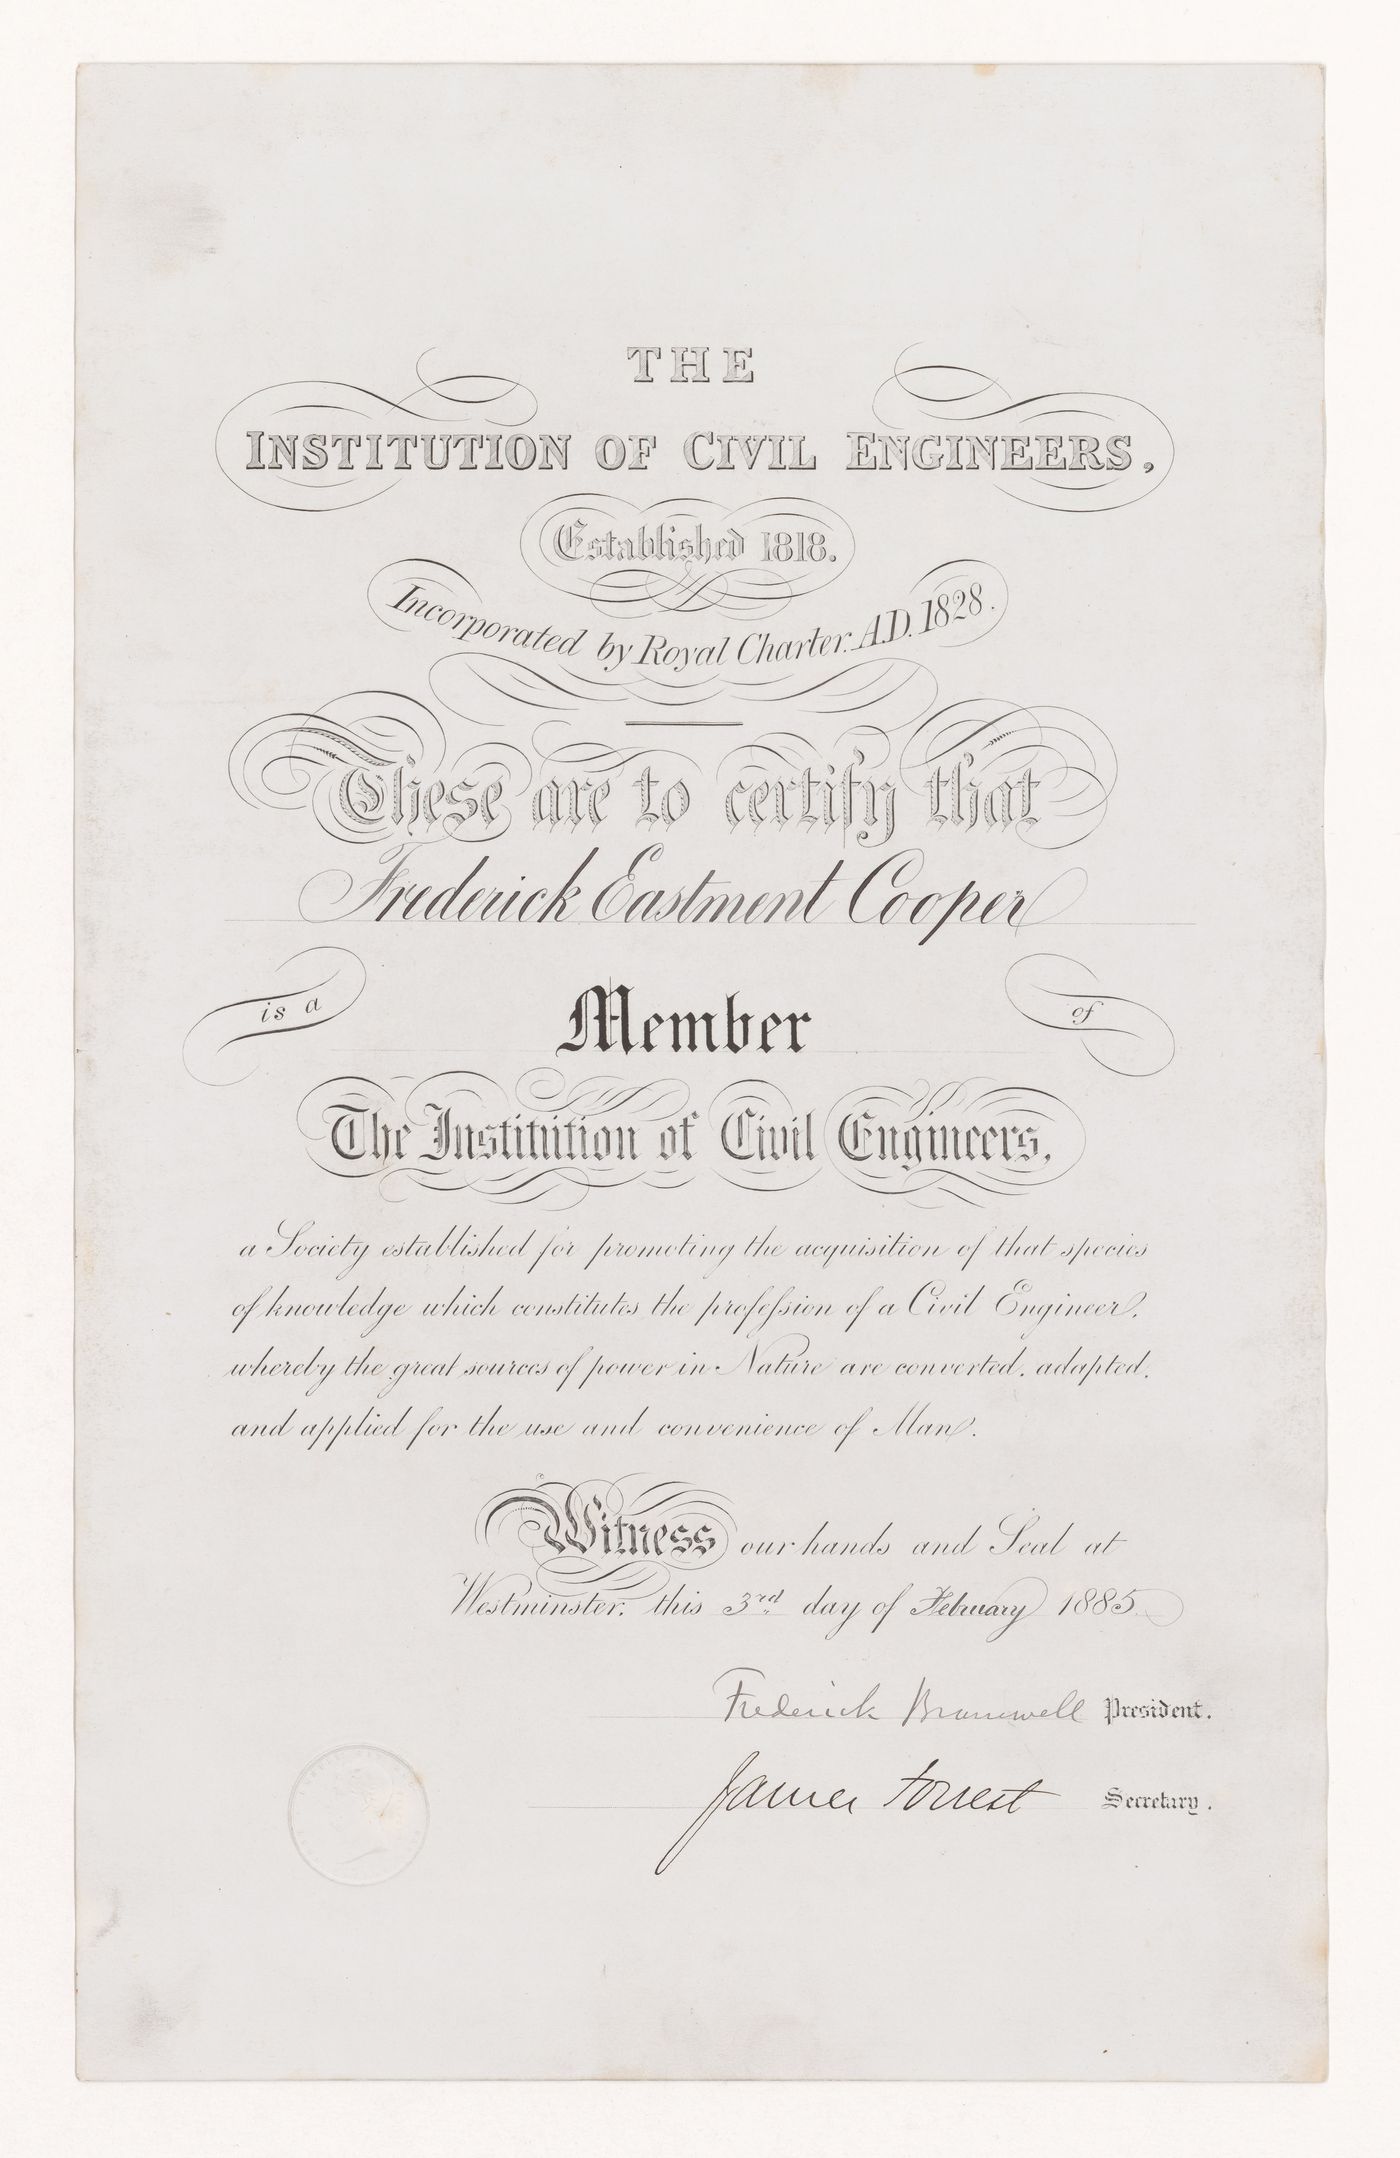 THE
INSTITUTION OF CIVIL ENGINEERS,
Established 1818.
Incorporated by Royal Charter. A.D. 1828.
These are to certify that
Frederick Eastment Cooper
is a Member of
The Institution of Civil Engineers,
a Society established for promoting the acquisition of that species
of knowledge which constitutes the profession of a Civil Engineer,
whereby the great sources of power in Nature are converted, adapted,
and applied for the use and convenience of Man.
Witness our hands and Seal at
Westminster, this 3rd day of February 1885.
Frederick Bramwell President.
James Forrest Secretary.